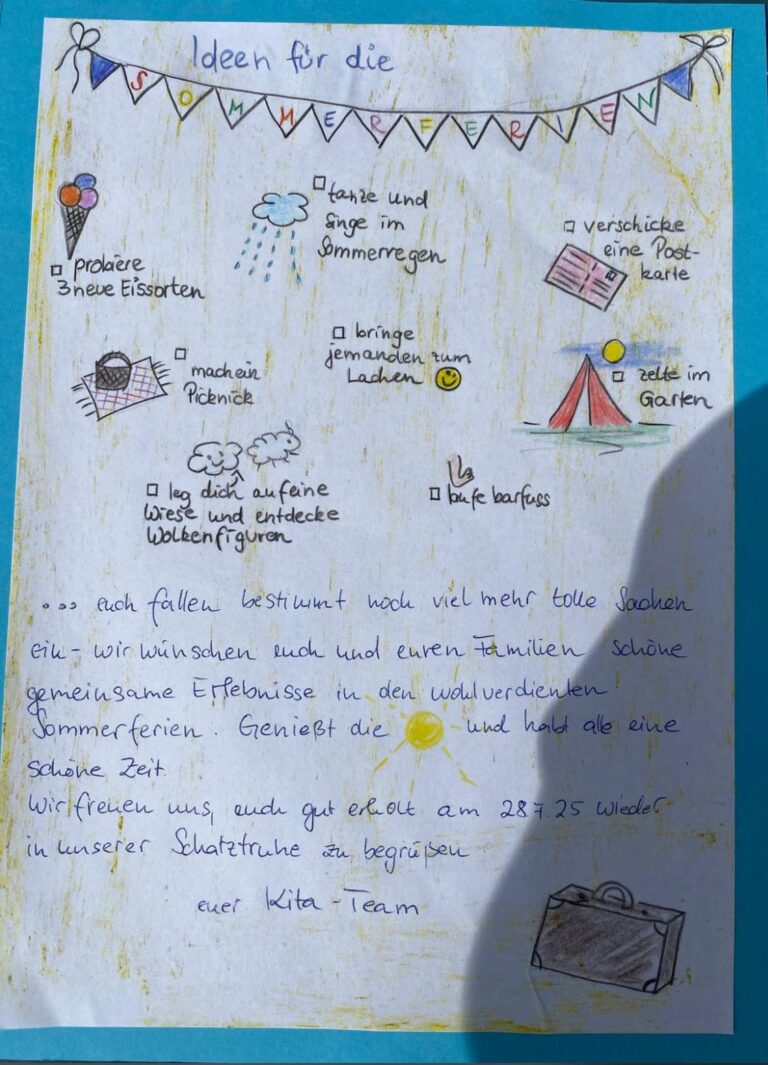 Ideen für die
SOMMERFERIEN
probiere
3 neue Eissorten
tanze und
singe im
Sommerregen
verschicke
eine Post-
karte
mach ein
Picknick
bringe
jemanden zum
Lachen
zelte im
Garten
leg dich auf eine
Wiese und entdecke
Wolkenfiguren
laufe barfuss
... euch fallen bestimmt noch viel mehr tolle Sachen
ein - wir wünschen euch und euren Familien schöne
gemeinsame Erlebnisse in den wohlverdienten
Sommerferien. Genießt die und habt alle eine
schöne Zeit.
Wir freuen uns, euch gut erholt am 28.7.25 wieder
in unserer Schatztruhe zu begrüßen
euer Kita-Team